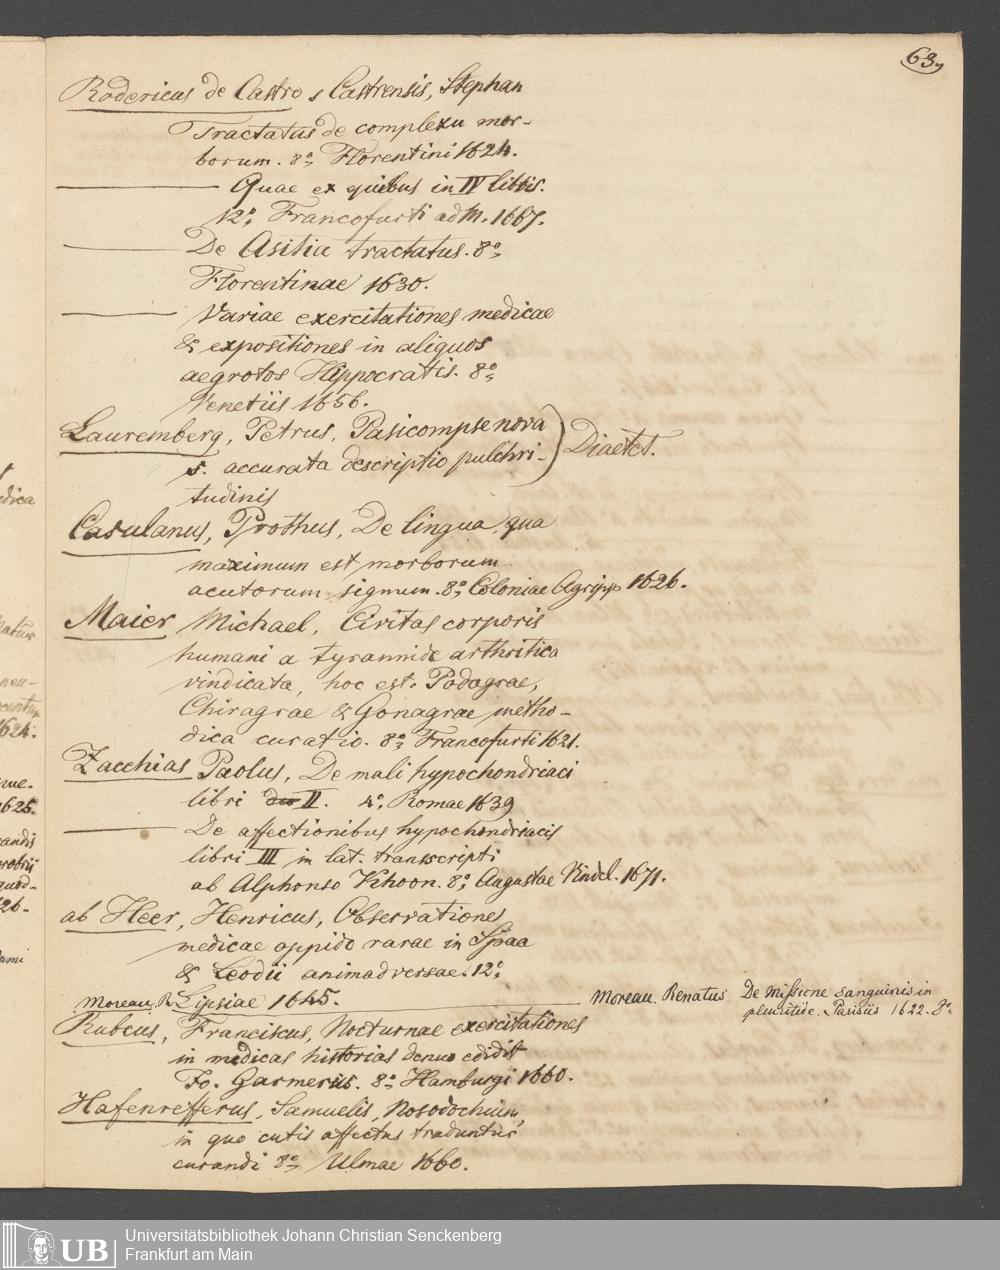 63,
Rodericus de Castro s Castrensis, Stephan
Tractatus de complexu mor-
borum. 8º, Florentini 1624.
——— Quae ex quibus in IV libris.
12º, Francofurti ad M. 1667.
——— De Asitia tractatus. 8º,
Florentinae 1630.
——— Variae exercitationes medicae
& expositiones in aliquos
aegrotos Hippocratis. 8º,
Venetiis 1656.
Lauremberg, Petrus, Pasicompse nova
s. accurata descriptio pulchri-
tudinis
) Diaetet.
Casulanus, Prothus, De lingua, qua
maximum est morborum
acutorum signum. 8º, Coloniae Agripp 1626.
Maier Michael, Civitas corporis
humani a tyrannide arthritica
vindicata, hoc est: Podagrae,
Chiragrae & Gonagrae metho-
dica curatio. 8º, Francofurti 1621.
Zacchias Paolus, De mali hypochondriaci
libri II. 4º, Romae 1639
——— De affectionibus hypochondriacis
libri III in lat. transscripti
ab Alphonso Khoon. 8º, Augustae Vindel. 1671.
ab Heer, Henricus, Observationes
medicae oppido rarae in Spaa
& Leodii animadversae. 12º,
Lipsiae 1645.
Moreau. R. ——— Moreau. Renatus De Missione sanguinis in
pleuritide. Parisiis 1622. 8º,
Rubeus, Franciscus, Nocturnae exercitationes
in medicas historias denuo edidit
Fo. Garmerus. 8º, Hamburgi 1660.
Hafenrefferus, Samuelis, Nosodochium,
in quo cutis affectus traduntur
curandi 8º, Ulmae 1660.
Universitätsbibliothek Johann Christian Senckenberg
Frankfurt am Main
UB